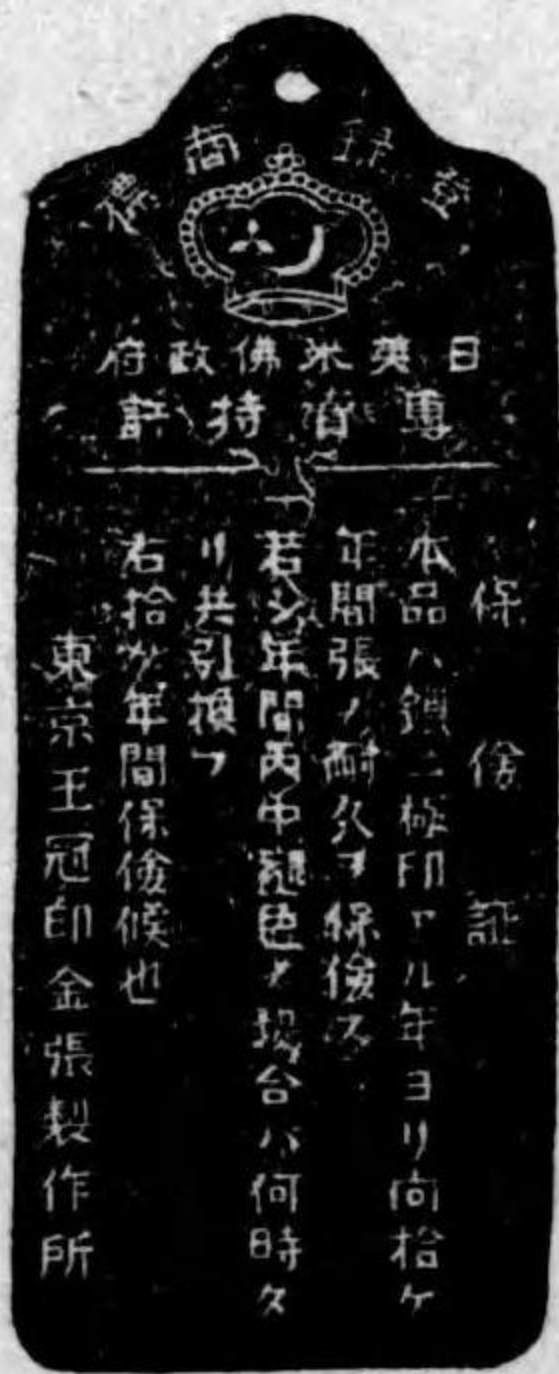 登録商標
日英米佛政府
專賣特許
保俻証
一本品ハ鎖ニ極印アル年ヨリ向拾ケ
年間張ノ耐久ヲ保俻ス
一若シ年間内中褪色ノ場合ハ何時タ
リ共引換フ
右拾ケ年間保俻候也
東京王冠印金張製作所